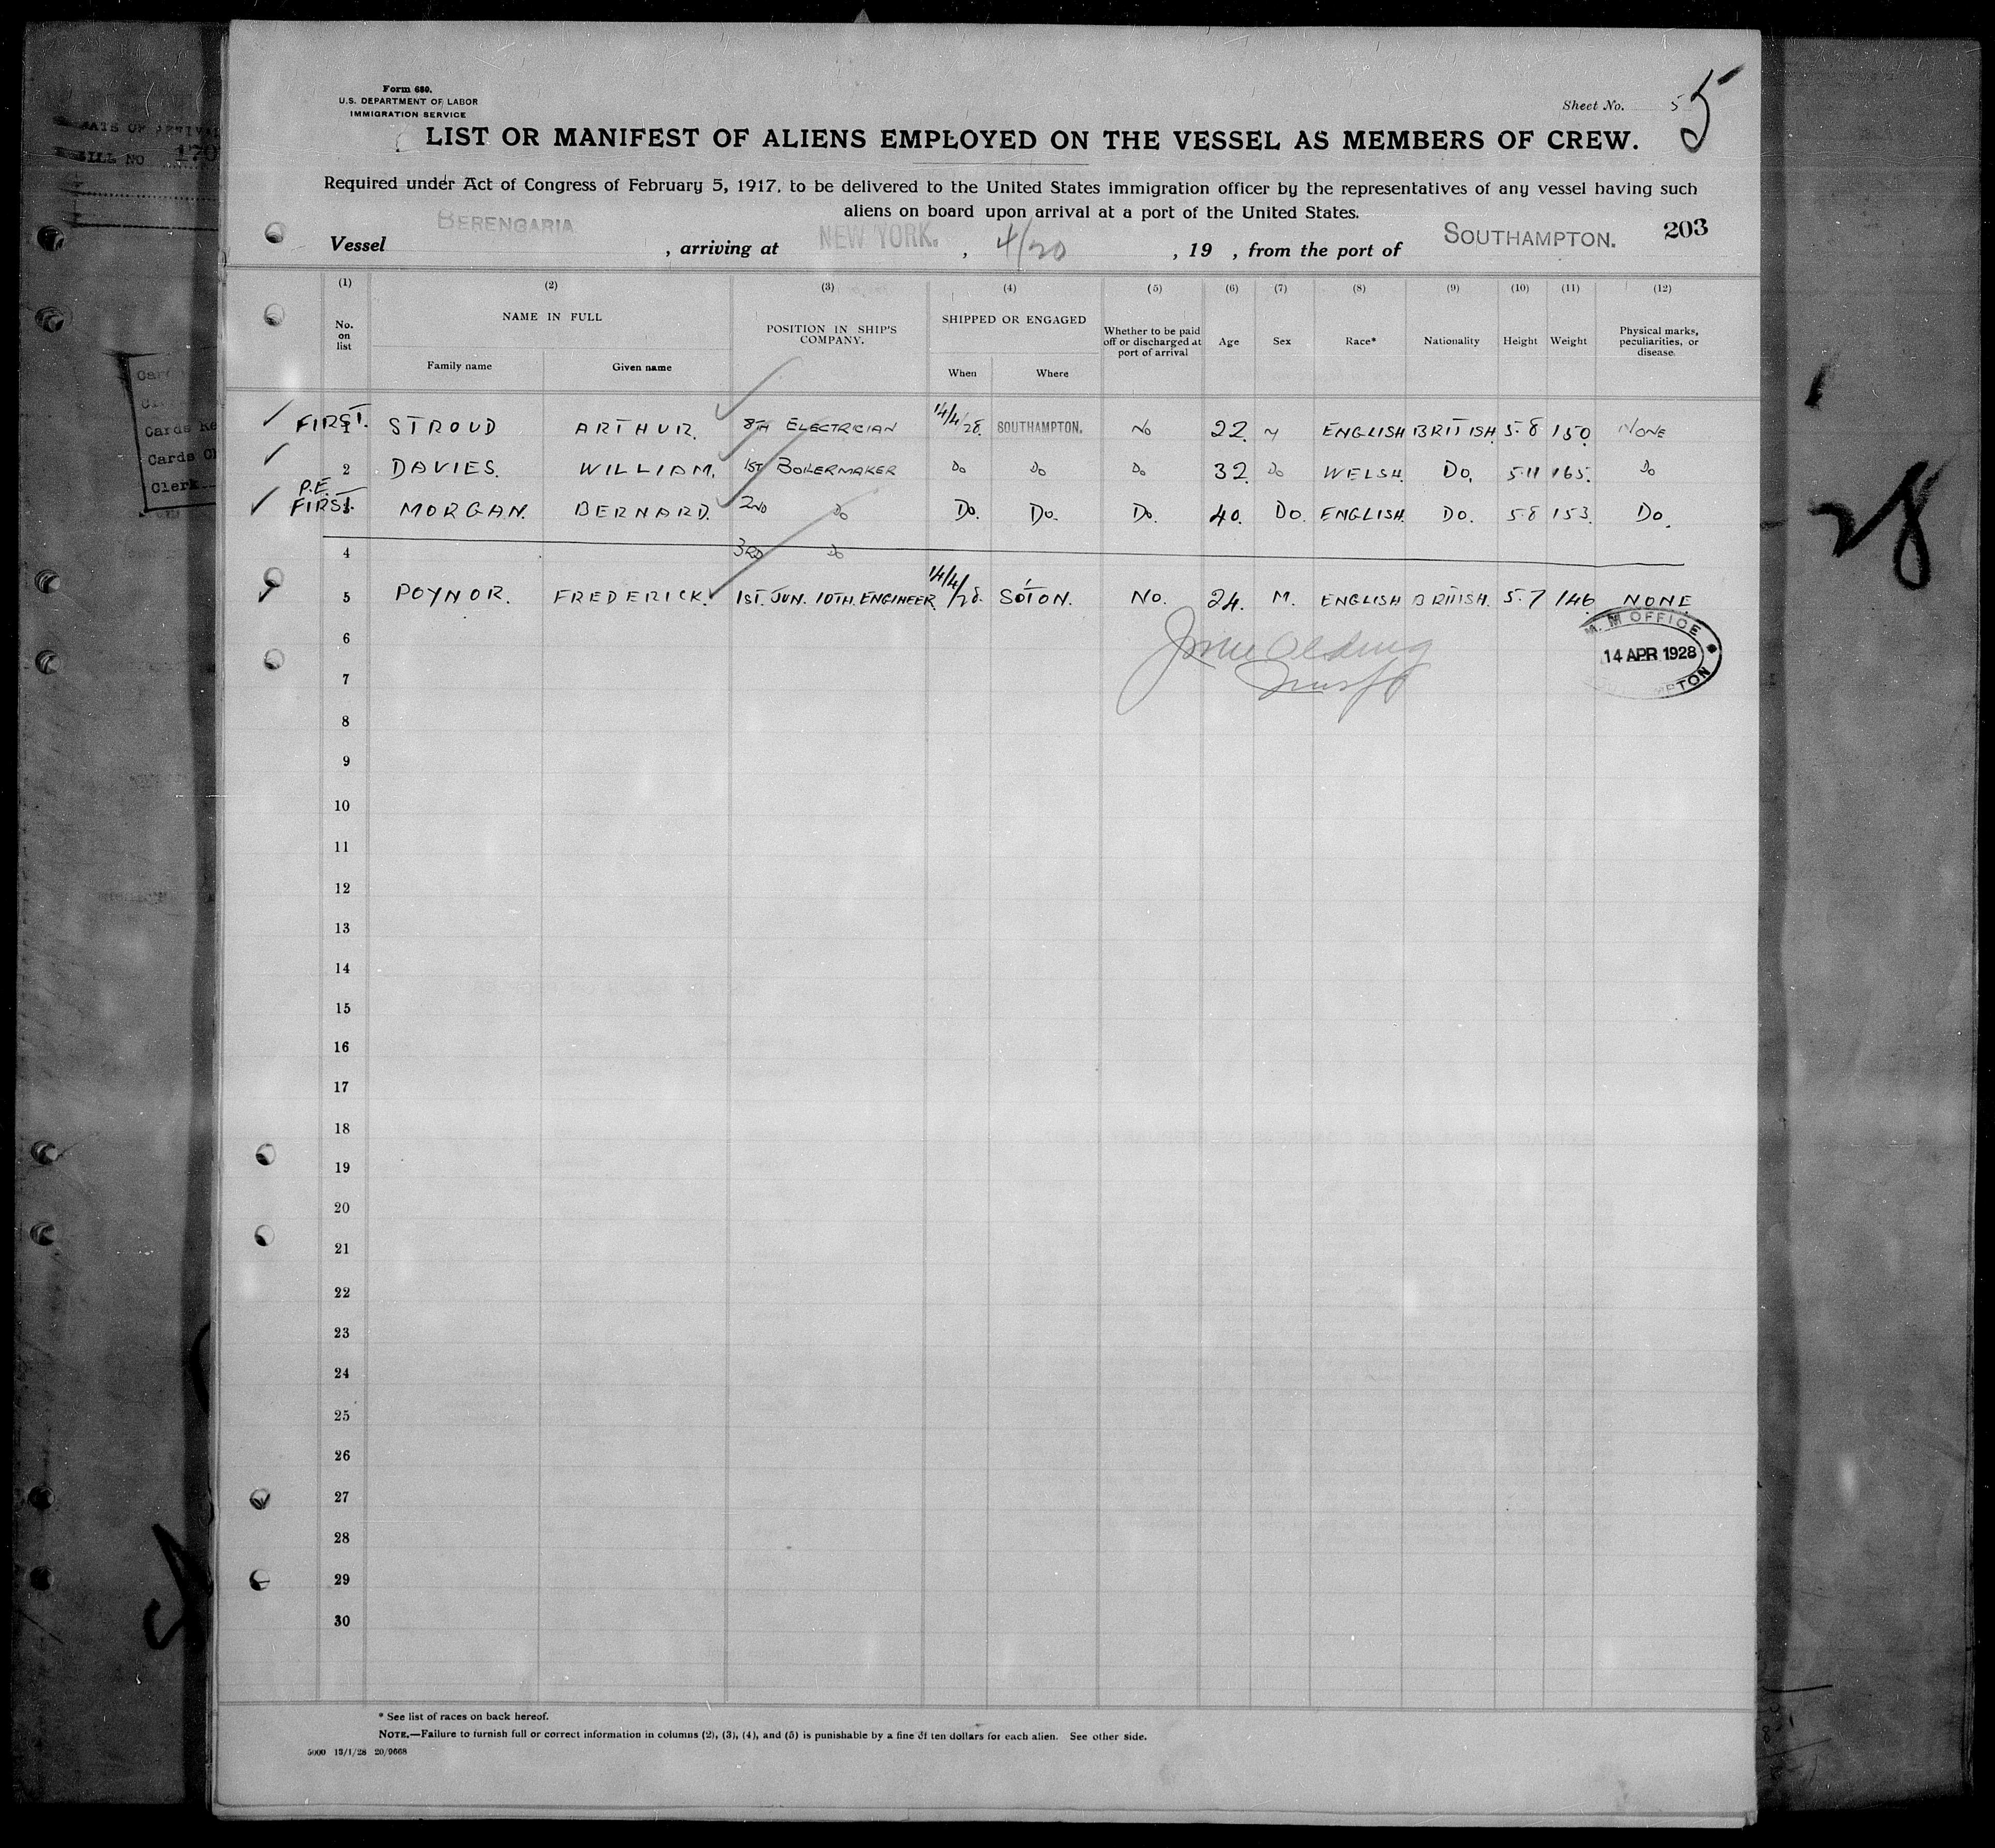 Form 680.
U.S. DEPARTMENT OF LABOR
IMMIGRATION SERVICE
Sheet No. 5 5
LIST OR MANIFEST OF ALIENS EMPLOYED ON THE VESSEL AS MEMBERS OF CREW.
Required under Act of Congress of February 5, 1917, to be delivered to the United States immigration officer by the representatives of any vessel having such
aliens on board upon arrival at a port of the United States.
Vessel BERENGARIA, arriving at NEW YORK., 4/20, 19 , from the port of SOUTHAMPTON. 203
(1) (2) (3) (4) (5) (6) (7) (8) (9) (10) (11) (12)
No. on list
NAME IN FULL
Family name Given name
POSITION IN SHIP'S COMPANY.
SHIPPED OR ENGAGED
When Where
Whether to be paid off or discharged at port of arrival
Age Sex Race* Nationality Height Weight
Physical marks, peculiarities, or disease.
FIRST. STROUD ARTHUR. 8TH ELECTRICIAN 14/4/28. SOUTHAMPTON. No 22. M ENGLISH BRITISH. 5.8 150. NONE
2 DAVIES. WILLIAM. 1ST BOILERMAKER Do Do Do 32. Do WELSH. Do. 5.11 165. Do
P.E.
FIRST. MORGAN. BERNARD. 2ND Do Do. Do. Do. 40. Do. ENGLISH. Do. 5.8 153. Do.
4 3RD Do
5 POYNOR. FREDERICK. 1ST. JUN. 10TH. ENGINEER. 14/4/28. SO'TON. No. 24. M. ENGLISH BRITISH. 5.7 146 NONE.
6
7
8
9
10
11
12
13
14
15
16
17
18
19
20
21
22
23
24
25
26
27
28
29
30
M. M OFFICE
14 APR 1928
28
BILL NO 170
Clerk
* See list of races on back hereof.
NOTE.—Failure to furnish full or correct information in columns (2), (3), (4), and (5) is punishable by a fine of ten dollars for each alien. See other side.
5000 13/1/28 20/9668